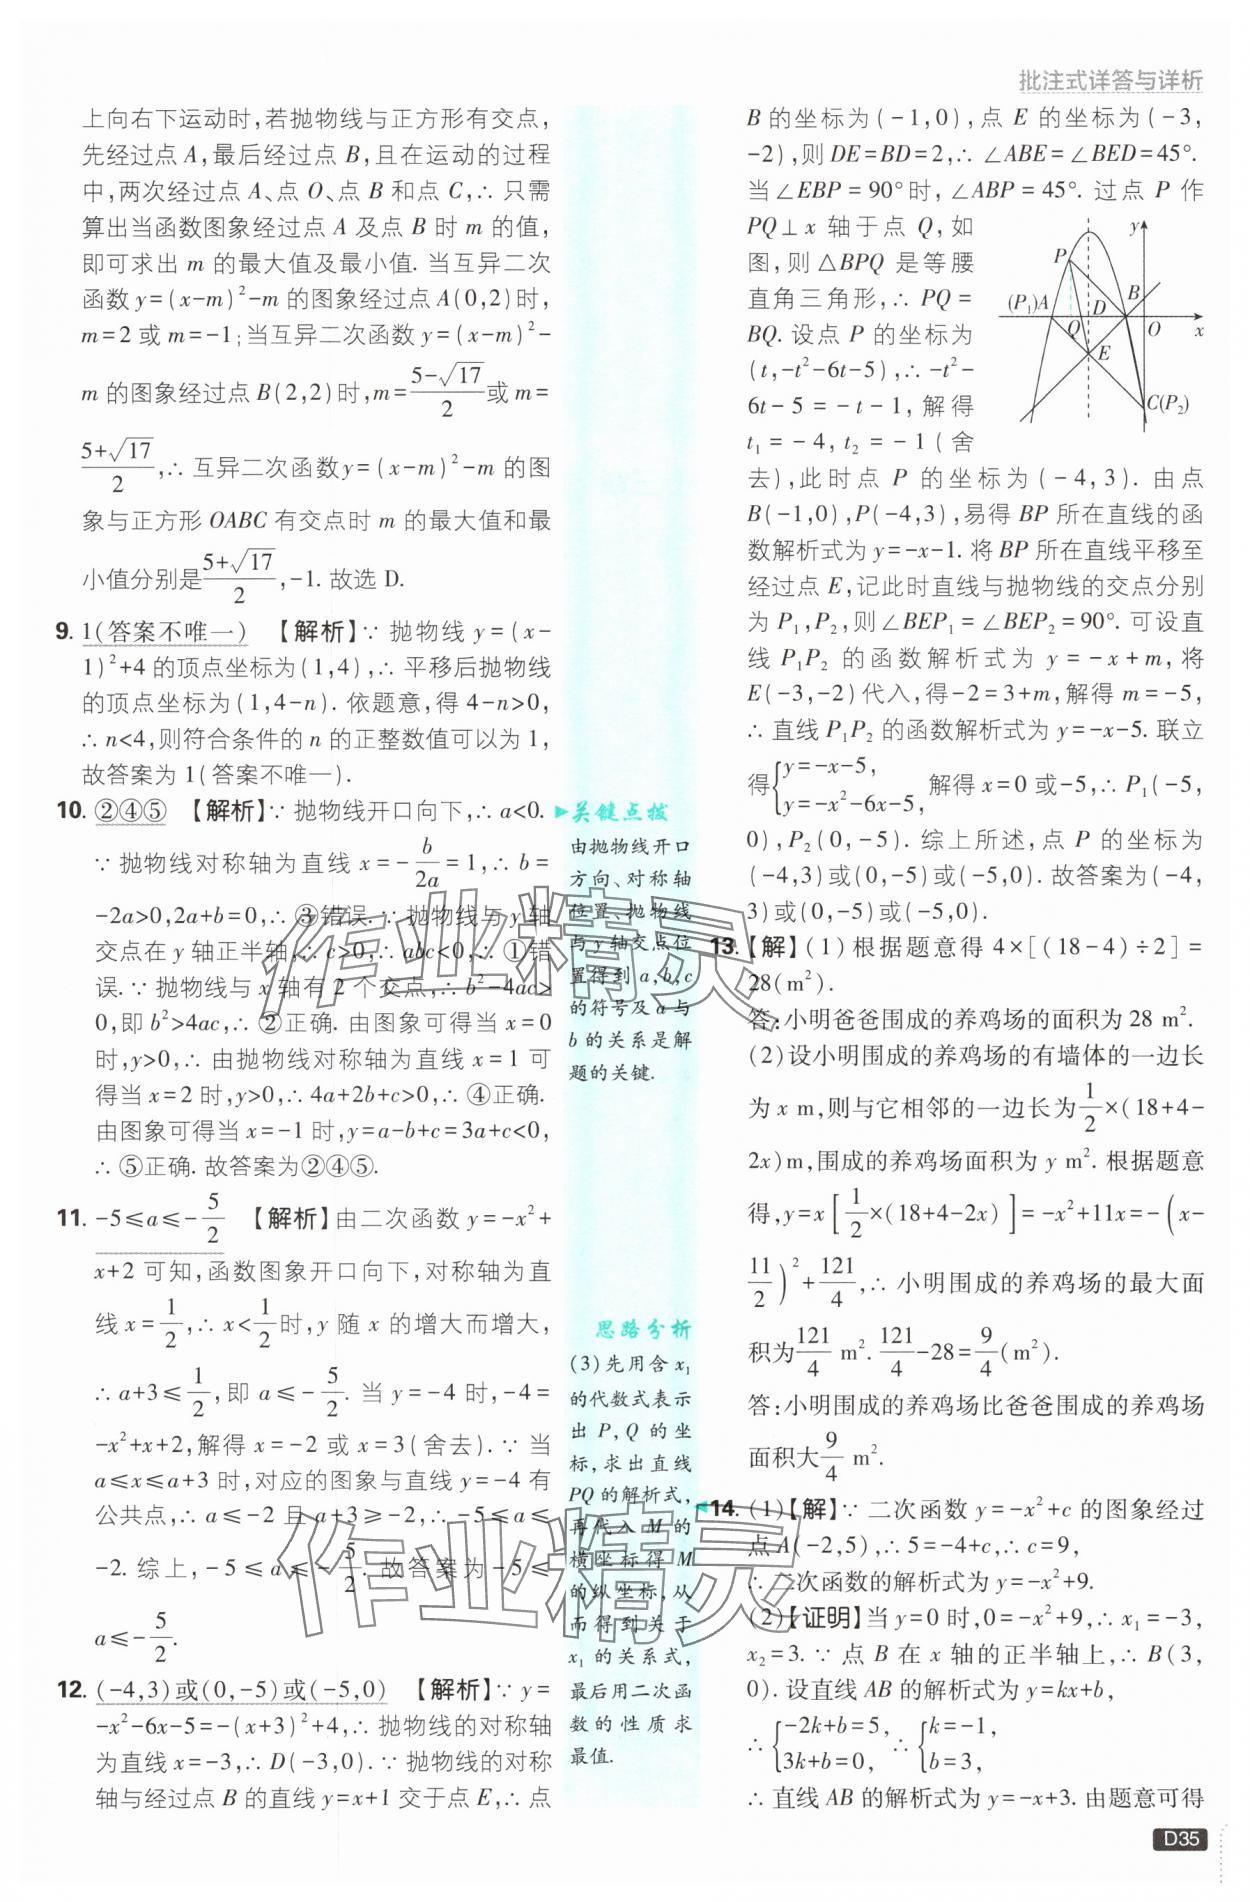 批注式详答与详析
上向右下运动时,若抛物线与正方形有交点,
先经过点 A,最后经过点 B,且在运动的过程
中,两次经过点 A、点 O、点 B 和点 C,∴ 只需
算出当函数图象经过点 A 及点 B 时 m 的值,
即可求出 m 的最大值及最小值. 当互异二次
函数 y=(x-m)²-m 的图象经过点 A(0,2)时,
m=2 或 m=-1;当互异二次函数 y=(x-m)²-
m 的图象经过点 B(2,2)时,m=(5-√17)/2 或 m=
(5+√17)/2,∴ 互异二次函数 y=(x-m)²-m 的图
象与正方形 OABC 有交点时 m 的最大值和最
小值分别是(5+√17)/2,-1. 故选 D.
9. 1(答案不唯一) 【解析】∵ 抛物线 y=(x-
1)²+4 的顶点坐标为(1,4),∴ 平移后抛物线
的顶点坐标为(1,4-n). 依题意,得 4-n>0,
∴ n<4,则符合条件的 n 的正整数值可以为 1,
故答案为 1(答案不唯一).
10. ②④⑤ 【解析】∵ 抛物线开口向下,∴ a<0.
∵ 抛物线对称轴为直线 x=-b/2a=1,∴ b=
-2a>0,2a+b=0,∴ ③错误. ∵ 抛物线与 y 轴
交点在 y 轴正半轴,∴ c>0,∴ abc<0,∴ ①错
误. ∵ 抛物线与 x 轴有 2 个交点,∴ b²-4ac>
0,即 b²>4ac,∴ ②正确. 由图象可得当 x=0
时,y>0,∴ 由抛物线对称轴为直线 x=1 可
得当 x=2 时,y>0,∴ 4a+2b+c>0,∴ ④正确.
由图象可得当 x=-1 时,y=a-b+c=3a+c<0,
∴ ⑤正确. 故答案为②④⑤.
11. -5≤a≤-5/2 【解析】由二次函数 y=-x²+
x+2 可知,函数图象开口向下,对称轴为直
线 x=1/2,∴ x<1/2时,y 随 x 的增大而增大,
∴ a+3≤1/2,即 a≤-5/2. 当 y=-4 时,-4=
-x²+x+2,解得 x=-2 或 x=3(舍去). ∵ 当
a≤x≤a+3 时,对应的图象与直线 y=-4 有
公共点,∴ a≤-2 且 a+3≥-2,∴ -5≤a≤
-2. 综上,-5≤a≤-5/2. 故答案为-5≤
a≤-5/2.
12. (-4,3)或(0,-5)或(-5,0) 【解析】∵ y=
-x²-6x-5=-(x+3)²+4,∴ 抛物线的对称轴
为直线 x=-3,∴ D(-3,0). ∵ 抛物线的对称
轴与经过点 B 的直线 y=x+1 交于点 E,∴ 点
关键点拨
由抛物线开口
方向、对称轴
位置、抛物线
与 y 轴交点位
置得到 a,b,c
的符号及 a 与
b 的关系是解
题的关键.
思路分析
(3)先用含 x₁
的代数式表示
出 P,Q 的坐
标,求出直线
PQ 的解析式,
再代入 M 的
横坐标得 M
的纵坐标,从
而得到关于
x₁ 的关系式,
最后用二次函
数的性质求
最值.
B 的坐标为(-1,0),点 E 的坐标为(-3,
-2),则 DE=BD=2,∴ ∠ABE=∠BED=45°.
当∠EBP=90°时,∠ABP=45°. 过点 P 作
PQ⊥x 轴于点 Q,如
图,则△BPQ 是等腰
直角三角形,∴ PQ=
BQ. 设点 P 的坐标为
(t,-t²-6t-5),∴ -t²-
6t-5=-t-1,解得
t₁=-4,t₂=-1(舍
y
P
B
(P₁)A
D
Q
O
x
E
C(P₂)
去),此时点 P 的坐标为(-4,3). 由点
B(-1,0),P(-4,3),易得 BP 所在直线的函
数解析式为 y=-x-1. 将 BP 所在直线平移至
经过点 E,记此时直线与抛物线的交点分别
为 P₁,P₂,则∠BEP₁=∠BEP₂=90°. 可设直
线 P₁P₂ 的函数解析式为 y=-x+m,将
E(-3,-2)代入,得-2=3+m,解得 m=-5,
∴ 直线 P₁P₂ 的函数解析式为 y=-x-5. 联立
得{y=-x-5, y=-x²-6x-5, 解得 x=0 或-5,∴ P₁(-5,
0),P₂(0,-5). 综上所述,点 P 的坐标为
(-4,3)或(0,-5)或(-5,0). 故答案为(-4,
3)或(0,-5)或(-5,0).
13. 【解】(1)根据题意得 4×[(18-4)÷2]=
28(m²).
答:小明爸爸围成的养鸡场的面积为 28 m².
(2)设小明围成的养鸡场的有墙体的一边长
为 x m,则与它相邻的一边长为1/2×(18+4-
2x)m,围成的养鸡场面积为 y m². 根据题意
得,y=x[1/2×(18+4-2x)]=-x²+11x=-(x-
11/2)²+121/4,∴ 小明围成的养鸡场的最大面
积为121/4 m². 121/4-28=9/4(m²).
答:小明围成的养鸡场比爸爸围成的养鸡场
面积大9/4 m².
14. (1)【解】∵ 二次函数 y=-x²+c 的图象经过
点 A(-2,5),∴ 5=-4+c,∴ c=9,
∴ 二次函数的解析式为 y=-x²+9.
(2)【证明】当 y=0 时,0=-x²+9,∴ x₁=-3,
x₂=3. ∵ 点 B 在 x 轴的正半轴上,∴ B(3,
0). 设直线 AB 的解析式为 y=kx+b,
∴ {-2k+b=5, 3k+b=0, ∴ {k=-1, b=3,
∴ 直线 AB 的解析式为 y=-x+3. 由题意可得
D35
作业精灵
作业精灵